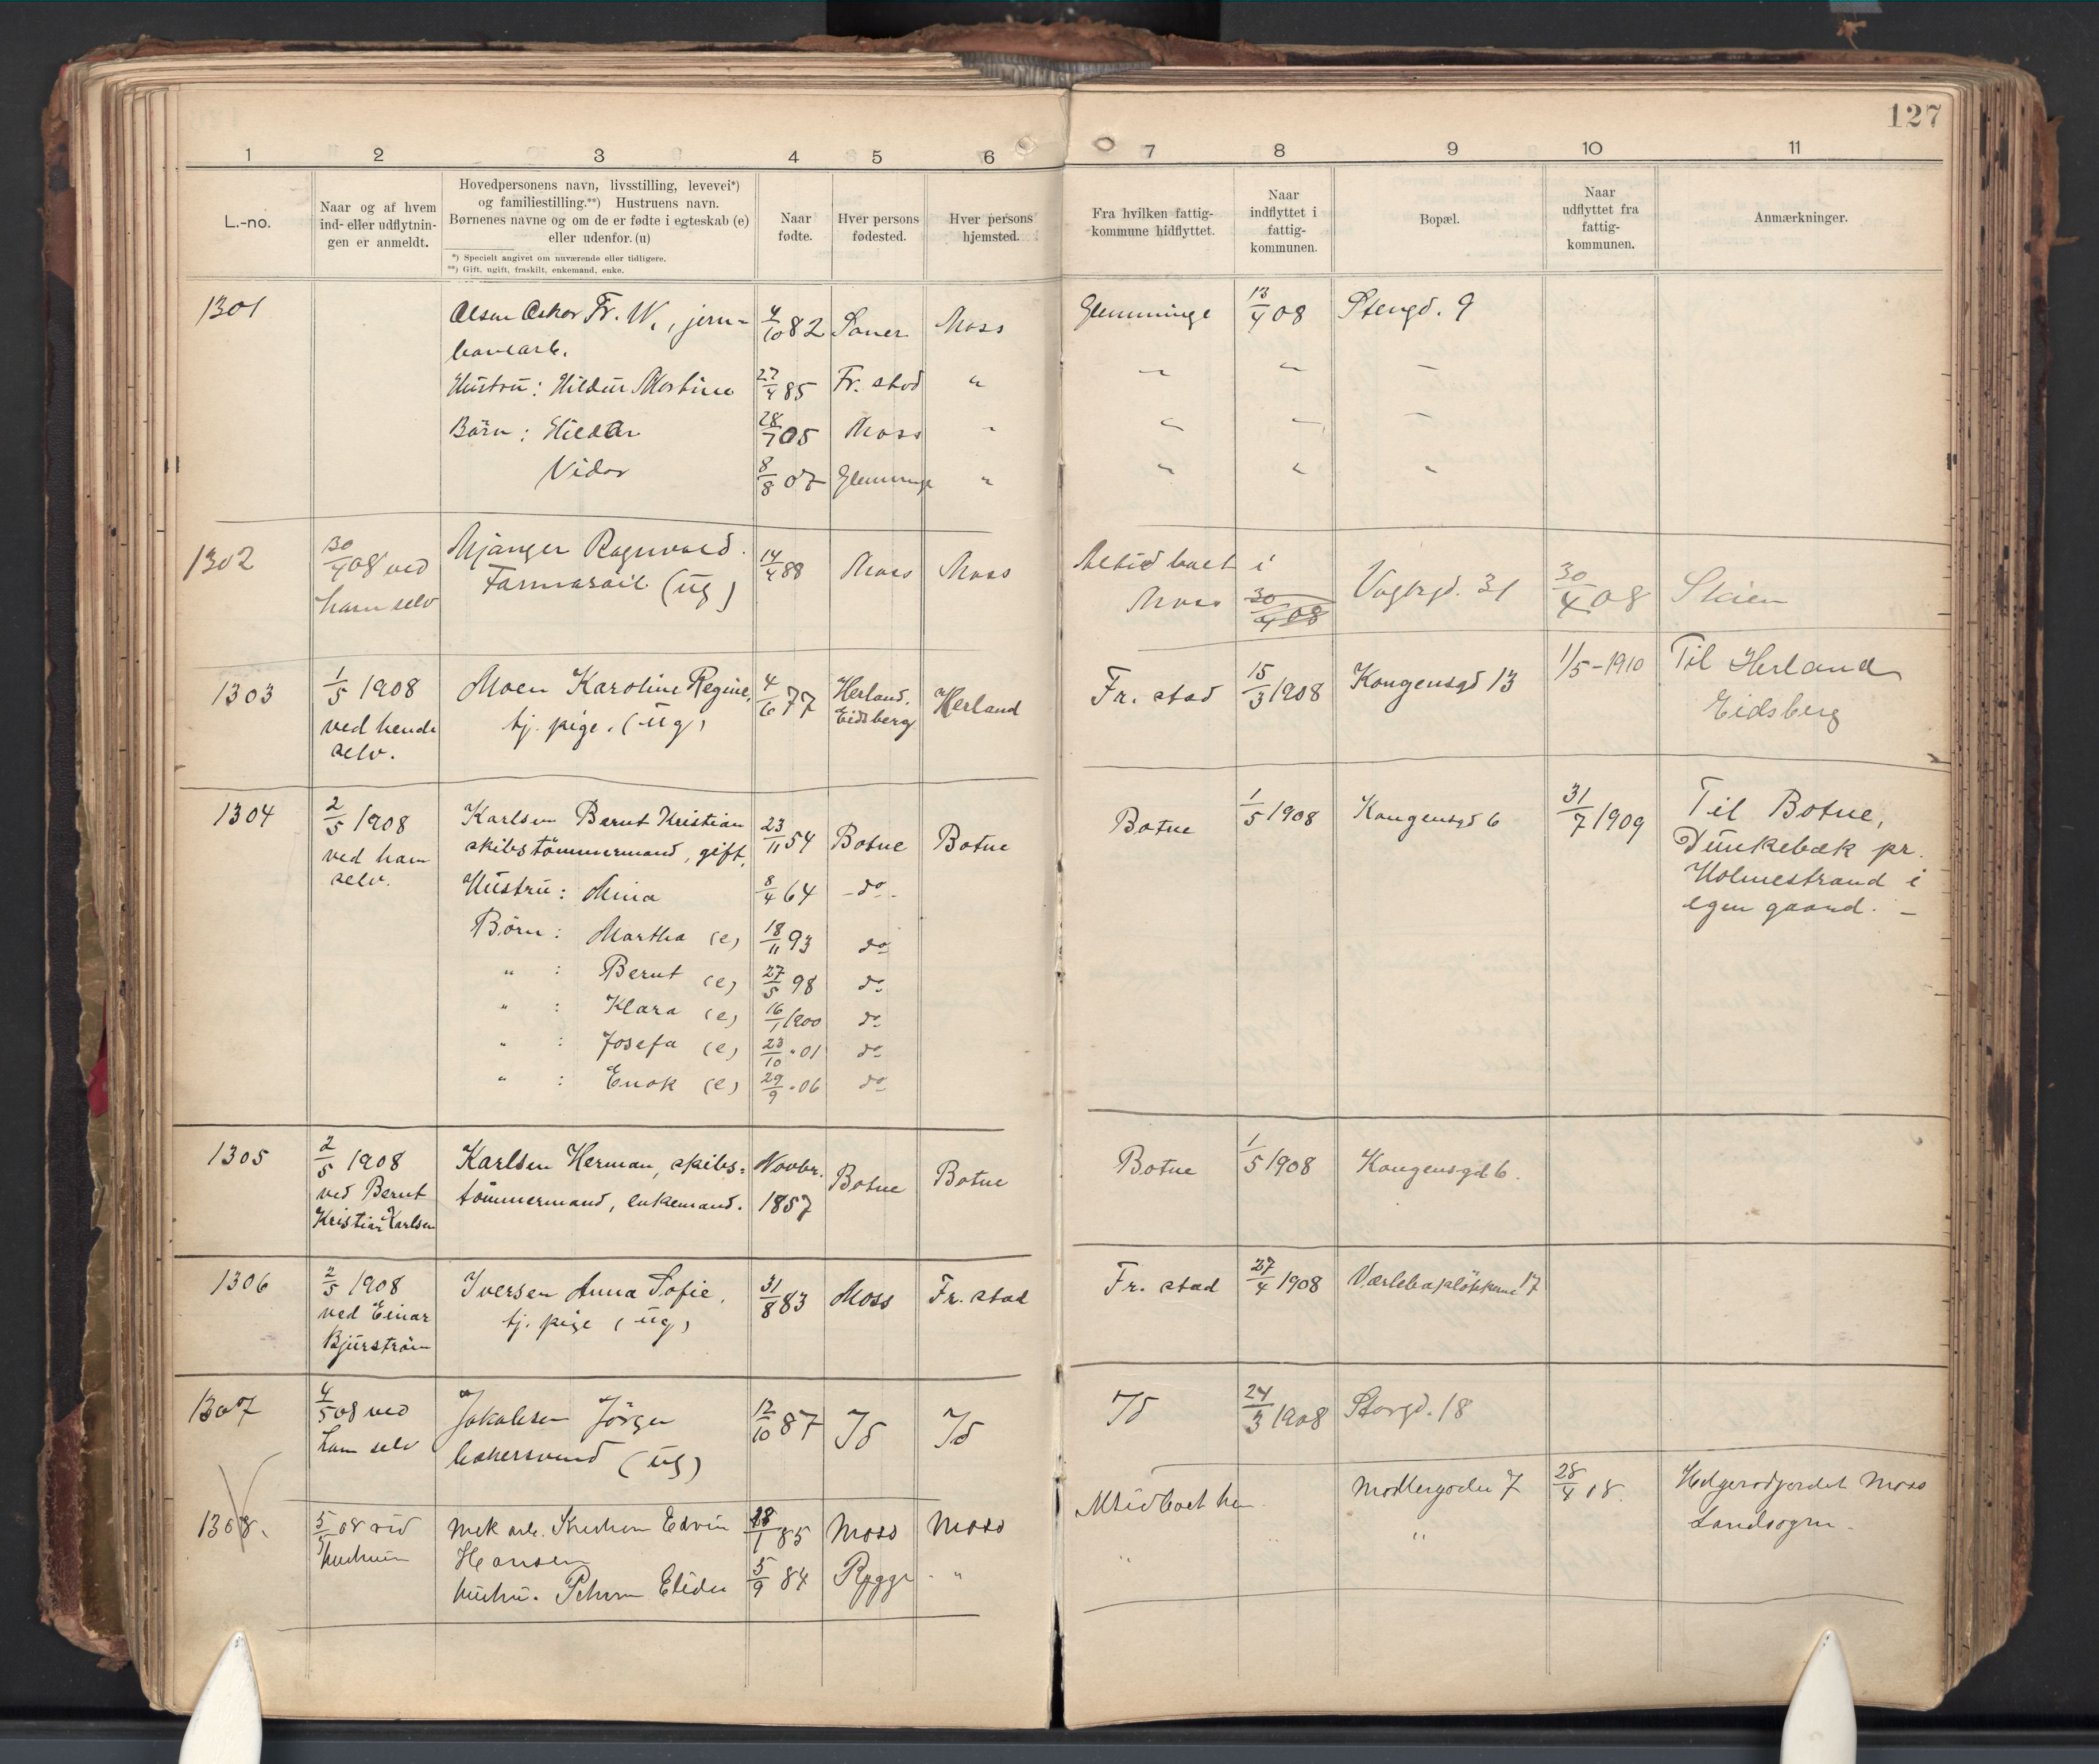 127
1 2 3 4 5 6 7 8 9 10 11
L.-no.
Naar og af hvem ind- eller udflytnin- gen er anmeldt.
Hovedpersonens navn, livsstilling, levevei*) og familiestilling.**) Hustruens navn. Børnenes navne og om de er fødte i egteskab (e) eller udenfor. (u)
*) Specielt angivet om nuværende eller tidligere.
**) Gift, ugift, fraskilt, enkemand, enke.
Naar fødte.
Hver persons fødested.
Hver persons hjemsted.
Fra hvilken fattig- kommune hidflyttet.
Naar indflyttet i fattig- kommunen.
Bopæl.
Naar udflyttet fra fattig- kommunen.
Anmærkninger.
1301 Olsen Oskar Fr. W., jern= 4/10 82 Saner Moss Glemminge 13/4 08 Stengd. 9
banearb.
Hustru: Hildur Martine 27/4 85 Fr. stad " " " "
Børn: Hildar 28/7 05 Moss " " " "
Vidar 8/8 07 Glemminge " " " "
1302 30/4 08 ved Mjanger Ragnvald. 14/4 88 Moss Moss Altid boet i Vogtsgd. 31 30/4 08 Skien
ham selv Farmasöit (ug) Moss 30/4 08
1303 1/5 1908 Moen Karoline Regine, 4/6 77 Herland, Herland Fr. stad 15/3 1908 Kongensgd 13 1/5-1910 Til Herland
ved hende tj. pige. (ug) Eidsberg Eidsberg
selv.
1304 2/5 1908 Karlsen Bernt Kristian 23/11 54 Botne Botne Botne 1/5 1908 Kongensgd 6 31/7 1909 Til Botne,
ved ham skibstömmermand, gift. Dunkebæk pr.
selv. Hustru: Mina 8/4 64 - do - Holmestrand i
Børn: Martha (e) 18/11 93 do egen gaard. -
" : Bernt (e) 27/5 98 do
" : Klara (e) 16/1 1900 do
" : Josefa (e) 23/10 "01 do
" : Enok (e) 29/9 "06 do
1305 2/5 1908 Karlsen Herman, skibs= Novbr. Botne Botne Botne 1/5 1908 Kongensgd 6.
ved Bernt tömmermand, enkemand. 1857
Kristian Karlsen
1306 2/5 1908 Iversen Anna Sofie, 31/8 83 Moss Fr. stad Fr. stad 27/4 1908 Værlebakløkkene 17
ved Einar tj. pige (ug)
Bjurström
1307 4/5 08 ved Jakobsen Jörgen 12/10 87 Id Id Id 24/3 1908 Storgd. 18
ham selv bakersvend (ug)
1308. 5/5 08 ved Mek arb. Edvin 28/1 85 Moss Moss Altid boet her Møllergaden 7 28/4 08. Helgerødjordet Moss
hustruen Hansen " " " Landsogn.
hustru. Elida 5/9 84 Rygge "